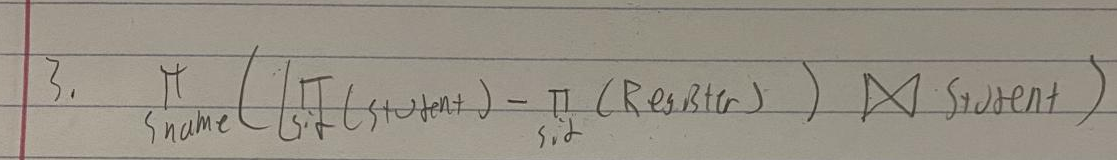 3. π sname ((π sid (student) - π sid (Register)) ⋈ Student)